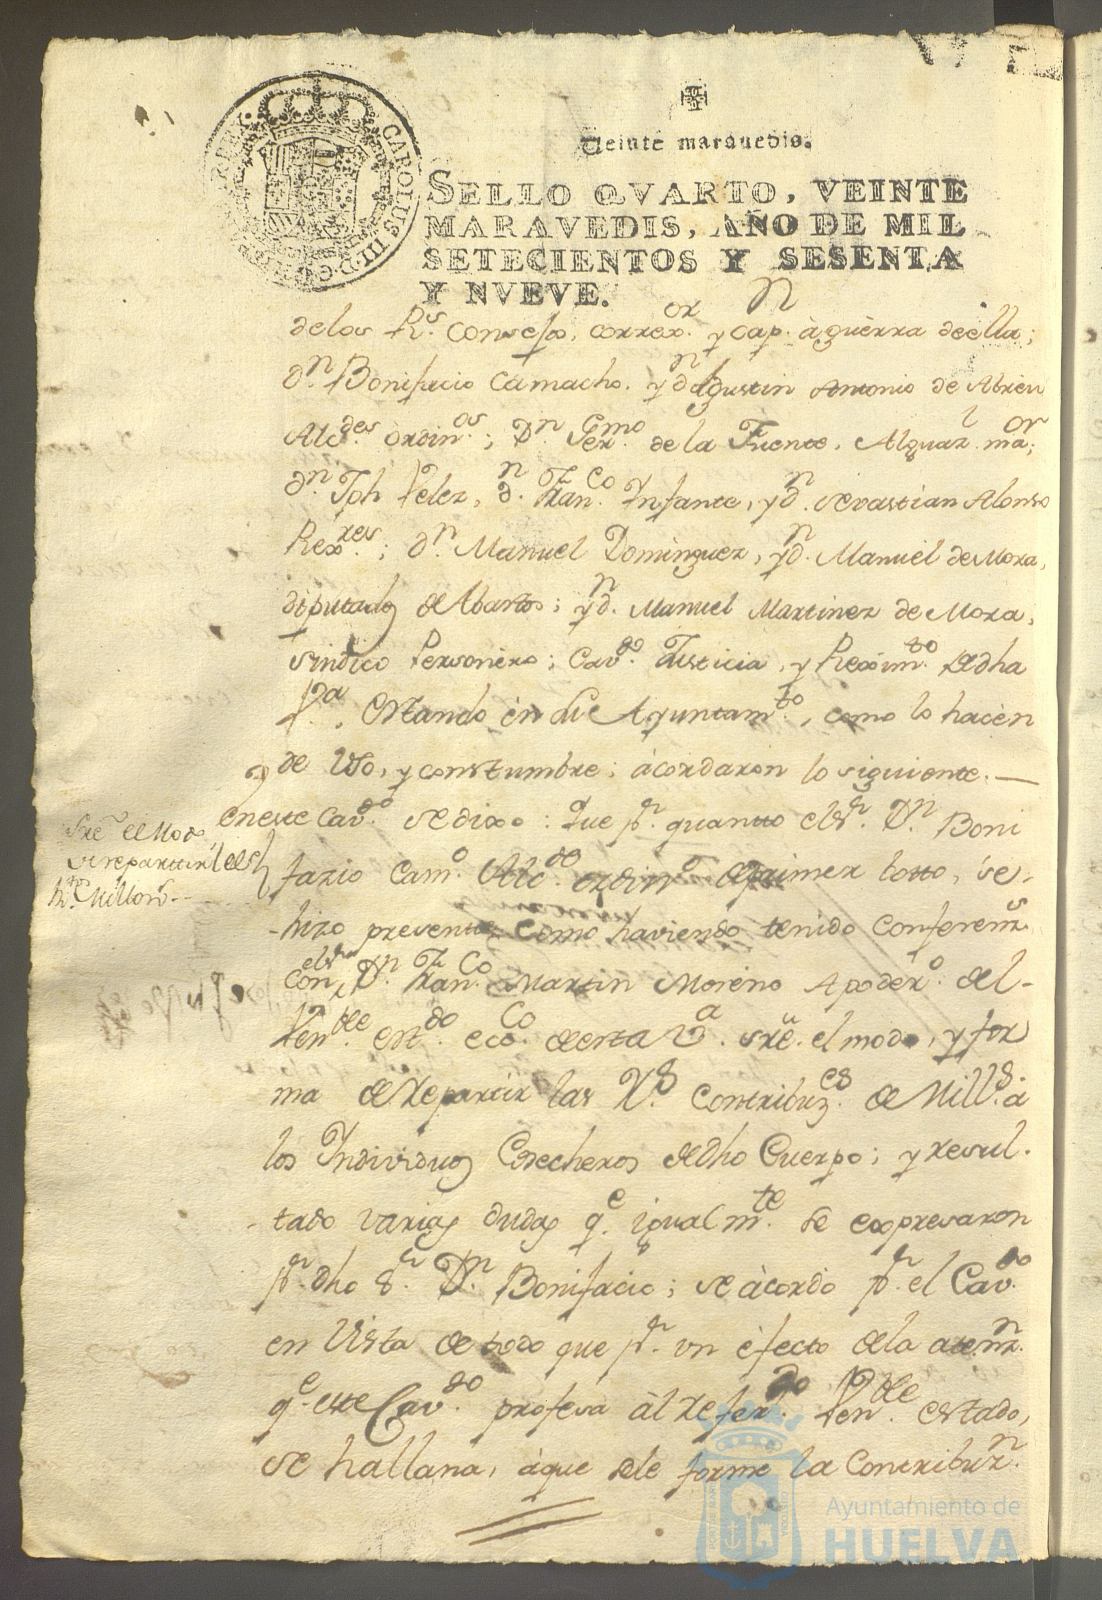 Veinte marauedis.
SELLO QVARTO, VEINTE
MARAVEDIS, AÑO DE MIL
SETECIENTOS Y SESENTA
Y NVEVE.
CAROLUS III D.G.
delos Rs. Consejos, correxor. y Capn. à guèrra deella;
dn. Bonifacio Camacho. y dn. Agustin Antonio de Abreu
Alcdes. òrdinos.; Dn. Germo. de la Fuente, Alguazl. maor;
dn. Jph Velez, dn. Franco. Infante, y dn. Sevastian Alonso
Rexxes.; dn. Manuel Dominguez, y dn. Manuel de Mora,
diputados de Abastos; y dn. Manuel Martinez de Mora,
Sindico Personèro; Cavdo. Justicia, y Reximto. de dha
Va. Estando èn su Ayuntamto., como lo hacèn
de Uso, y constumbre; àcordaron lo siguiente.—
eneste Cavdo. se dixo: Que pr. quanto el Sr. Dn. Boni
Sre. el Modo
de repartir
Millons.
fazio Camo. Alcde. ordino. de primer Voto, se
hizo presente como haviendo tenido conferenz.
con el Sr. Dn. Franco. Martin Moreno Apodero. del
Venble. estdo. ecco. de esta Va. sre. el modo, y for
ma de Repartir las Rs. Contribuzes. de Mills. à
los Individuos Cosecheros de dho Cuerpo; y resul-
tado varias dudas qe. igualmte. se expresaron
pr. dho Sr. Dn. Bonifacio; se àcordò pr. el Cavdo.
en Vista de todo que pr. un èfecto de la atenzn.
qe. este Cavdo. profesa àl Referdo. Venble. estado,
se hallana, àque sele forme la Contribuzn.
Ayuntamiento de
HUELVA